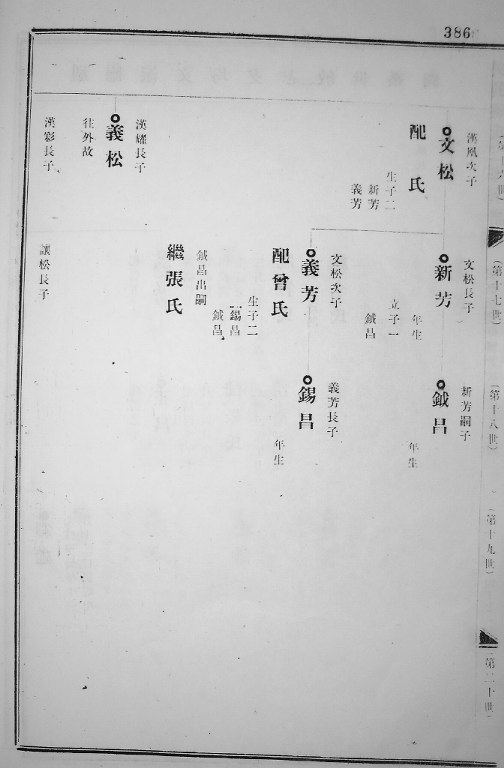 386
(第十七世)
(第十八世)
(第十九世)
(第二十世)
漢凰次子
文松
配 氏
生子二
新芳
義芳
漢耀長子
義松
往外故
漢彩長子
文松長子
新芳
年生
立子一
鉞昌
文松次子
義芳
配曾氏
生子二
錫昌
鉞昌
鉞昌出嗣
繼張氏
讓松長子
新芳嗣子
鉞昌
年生
義芳長子
錫昌
年生